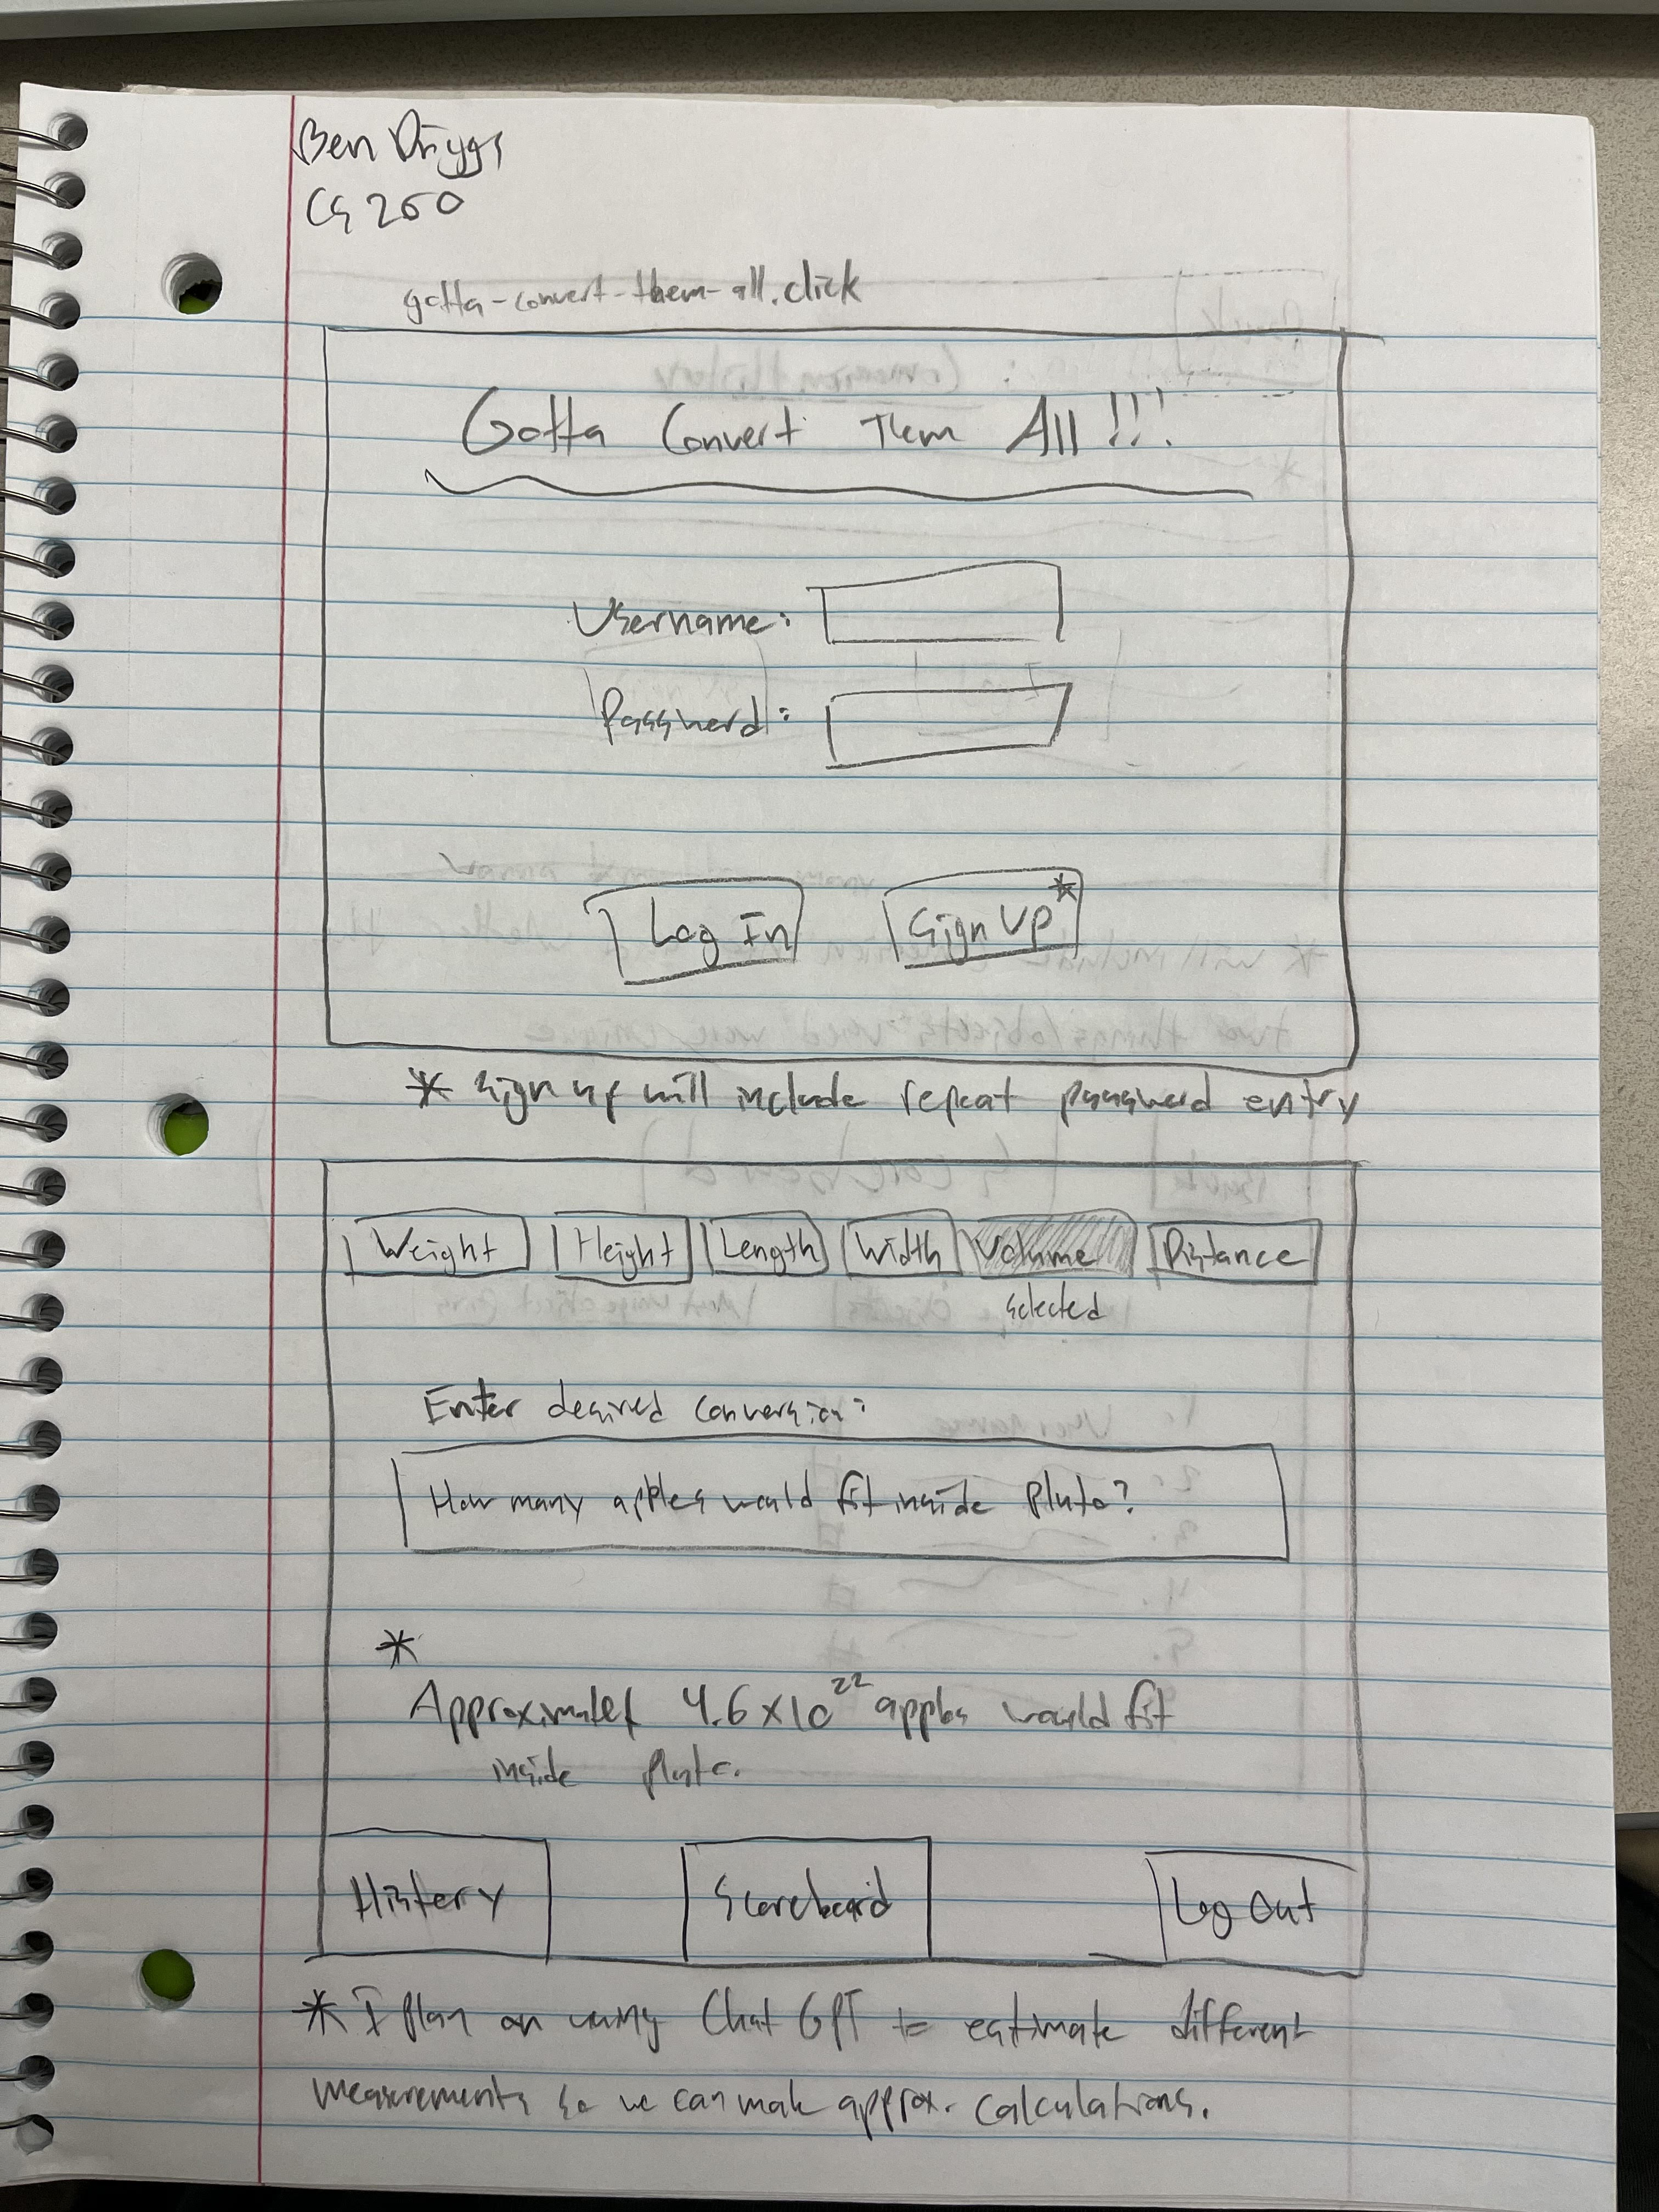 Ben Driggs
CS 260
gotta-convert-them-all.click
Gotta Convert Them All!!!
Username:
Password:
Log In Sign Up*
* sign up will include repeat password entry
Weight Height Length Width Volume Distance
selected
Enter desired conversion:
How many apples would fit inside Pluto?
*
Approximately 4.6 x 10^22 apples would fit
inside pluto.
History Scoreboard Log Out
* I plan on using Chat GPT to estimate different
measurements so we can make approx. calculations.